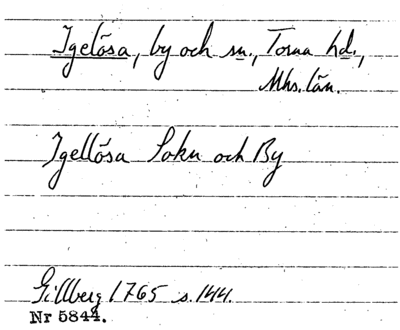 Igelösa, by och sn., Torna hd.,
Mhs. län.
Igellösa Sokn och By
Gillberg 1765 s. 144.
Nr 5844.